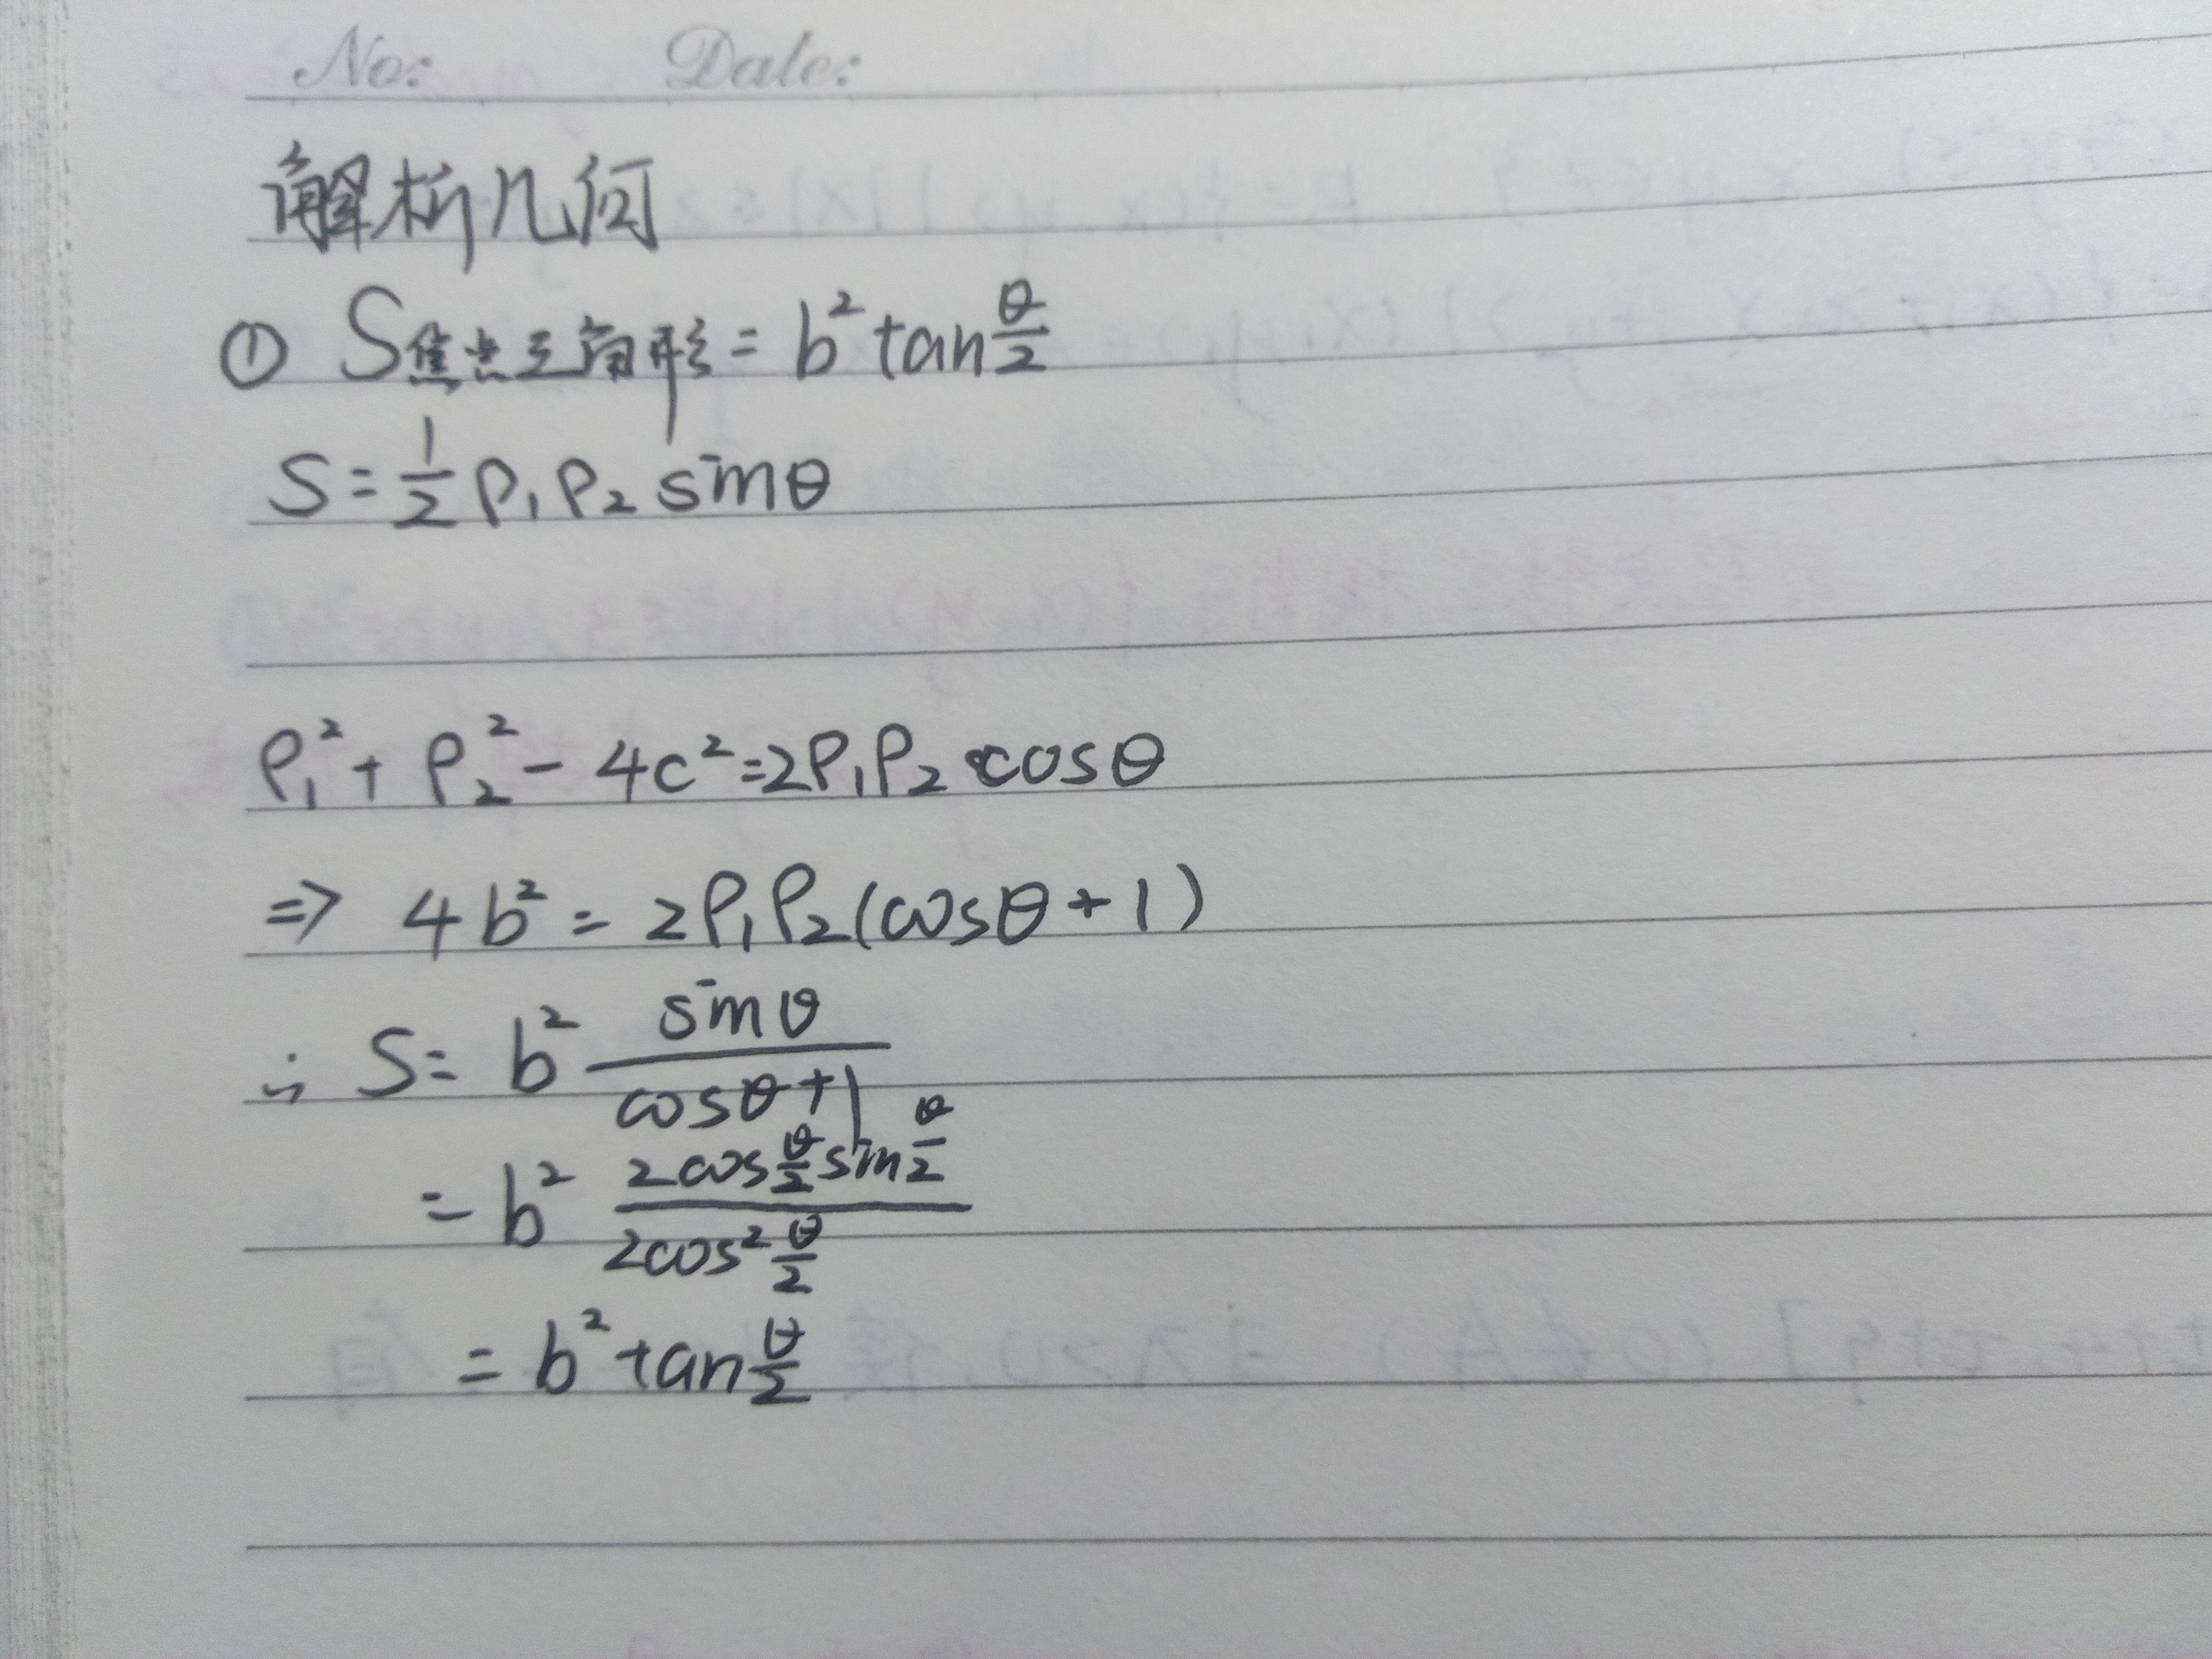 No: Date:
解析几何
① S焦点三角形 = b² tan θ/2
S = 1/2 ρ₁ρ₂ sinθ
ρ₁² + ρ₂² - 4c² = 2ρ₁ρ₂ cosθ
⇒ 4b² = 2ρ₁ρ₂(cosθ + 1)
∴ S = b² sinθ / (cosθ + 1)
= b² 2cos θ/2 sin θ/2 / 2cos² θ/2
= b² tan θ/2